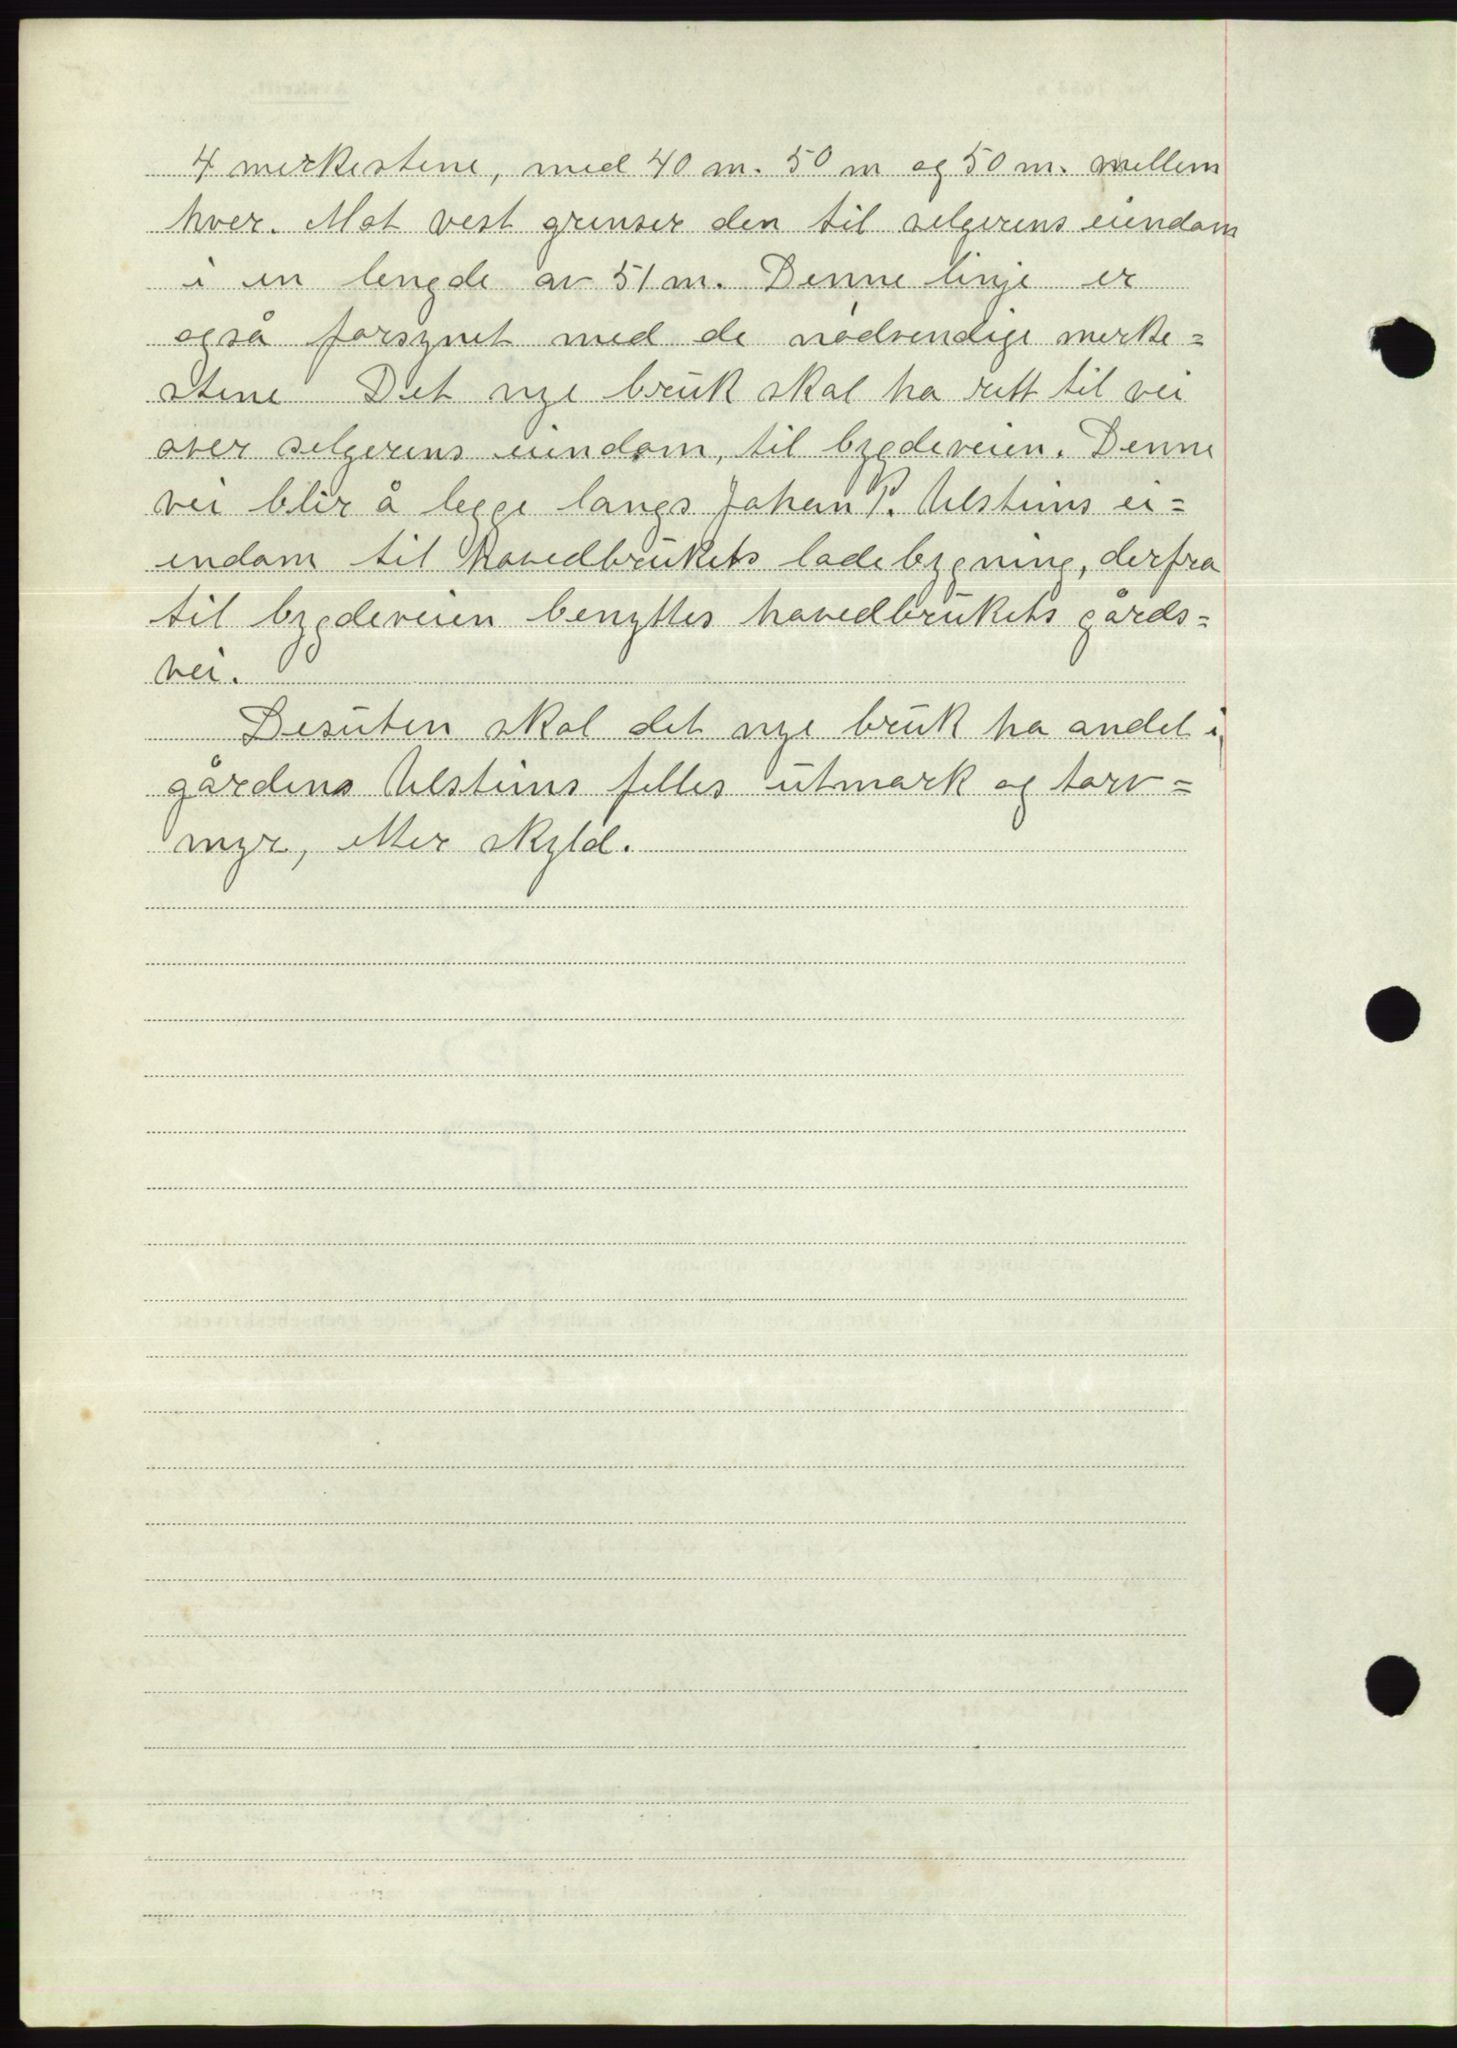 4 merkestene, med 40 m. 50 m og 50 m. mellem
hver. Mot vest grenser den til selgerens eiendom
i en lengde av 51 m. Denne linje er
også forsynet med de nødvendige merke=
stene Det nye bruk skal ha rett til vei
over selgerens eiendom, til bygdeveien. Denne
vei blir å legge langs Johan P. Ulsteins ei=
endom til hovedbrukets ladebygning, derfra
til bygdeveien benyttes hovedbrukets gårds=
vei.
Desuten skal det nye bruk ha andel i
gårdens Ulsteins felles utmark og torv=
myr, etter skyld.